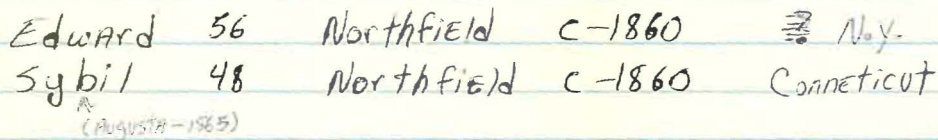 Edward 56 Northfield C-1860 N.Y.
Sybil 48 Northfield C-1860 Conneticut
(Augusta-1865)